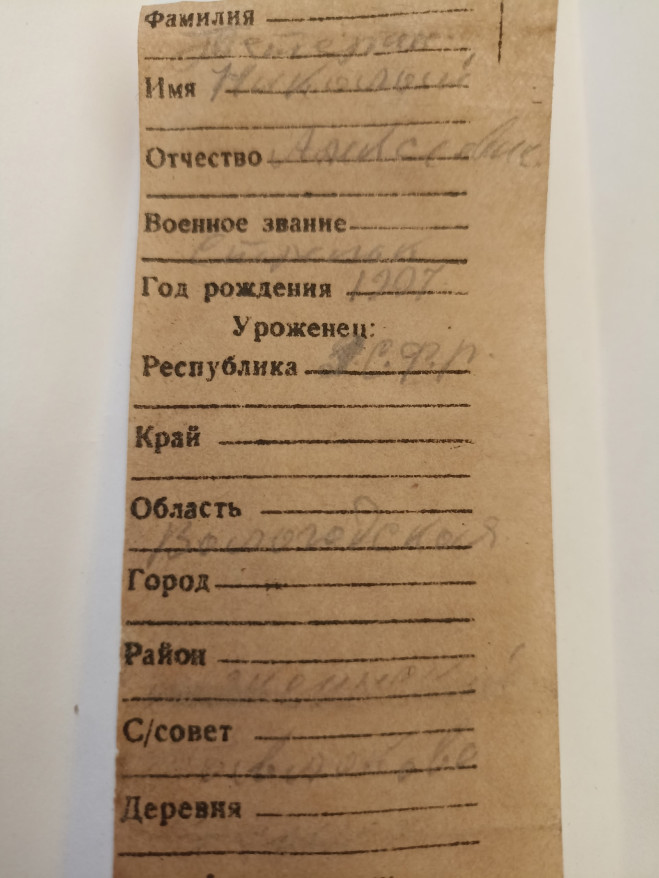 Фамилия
Имя Николай
Отчество Алексеевич
Военное звание
Стрелок
Год рождения 1907
Уроженец:
Республика С.Ф.Р.
Край
Область
Вологодская
Город
Район
С/совет
Деревня